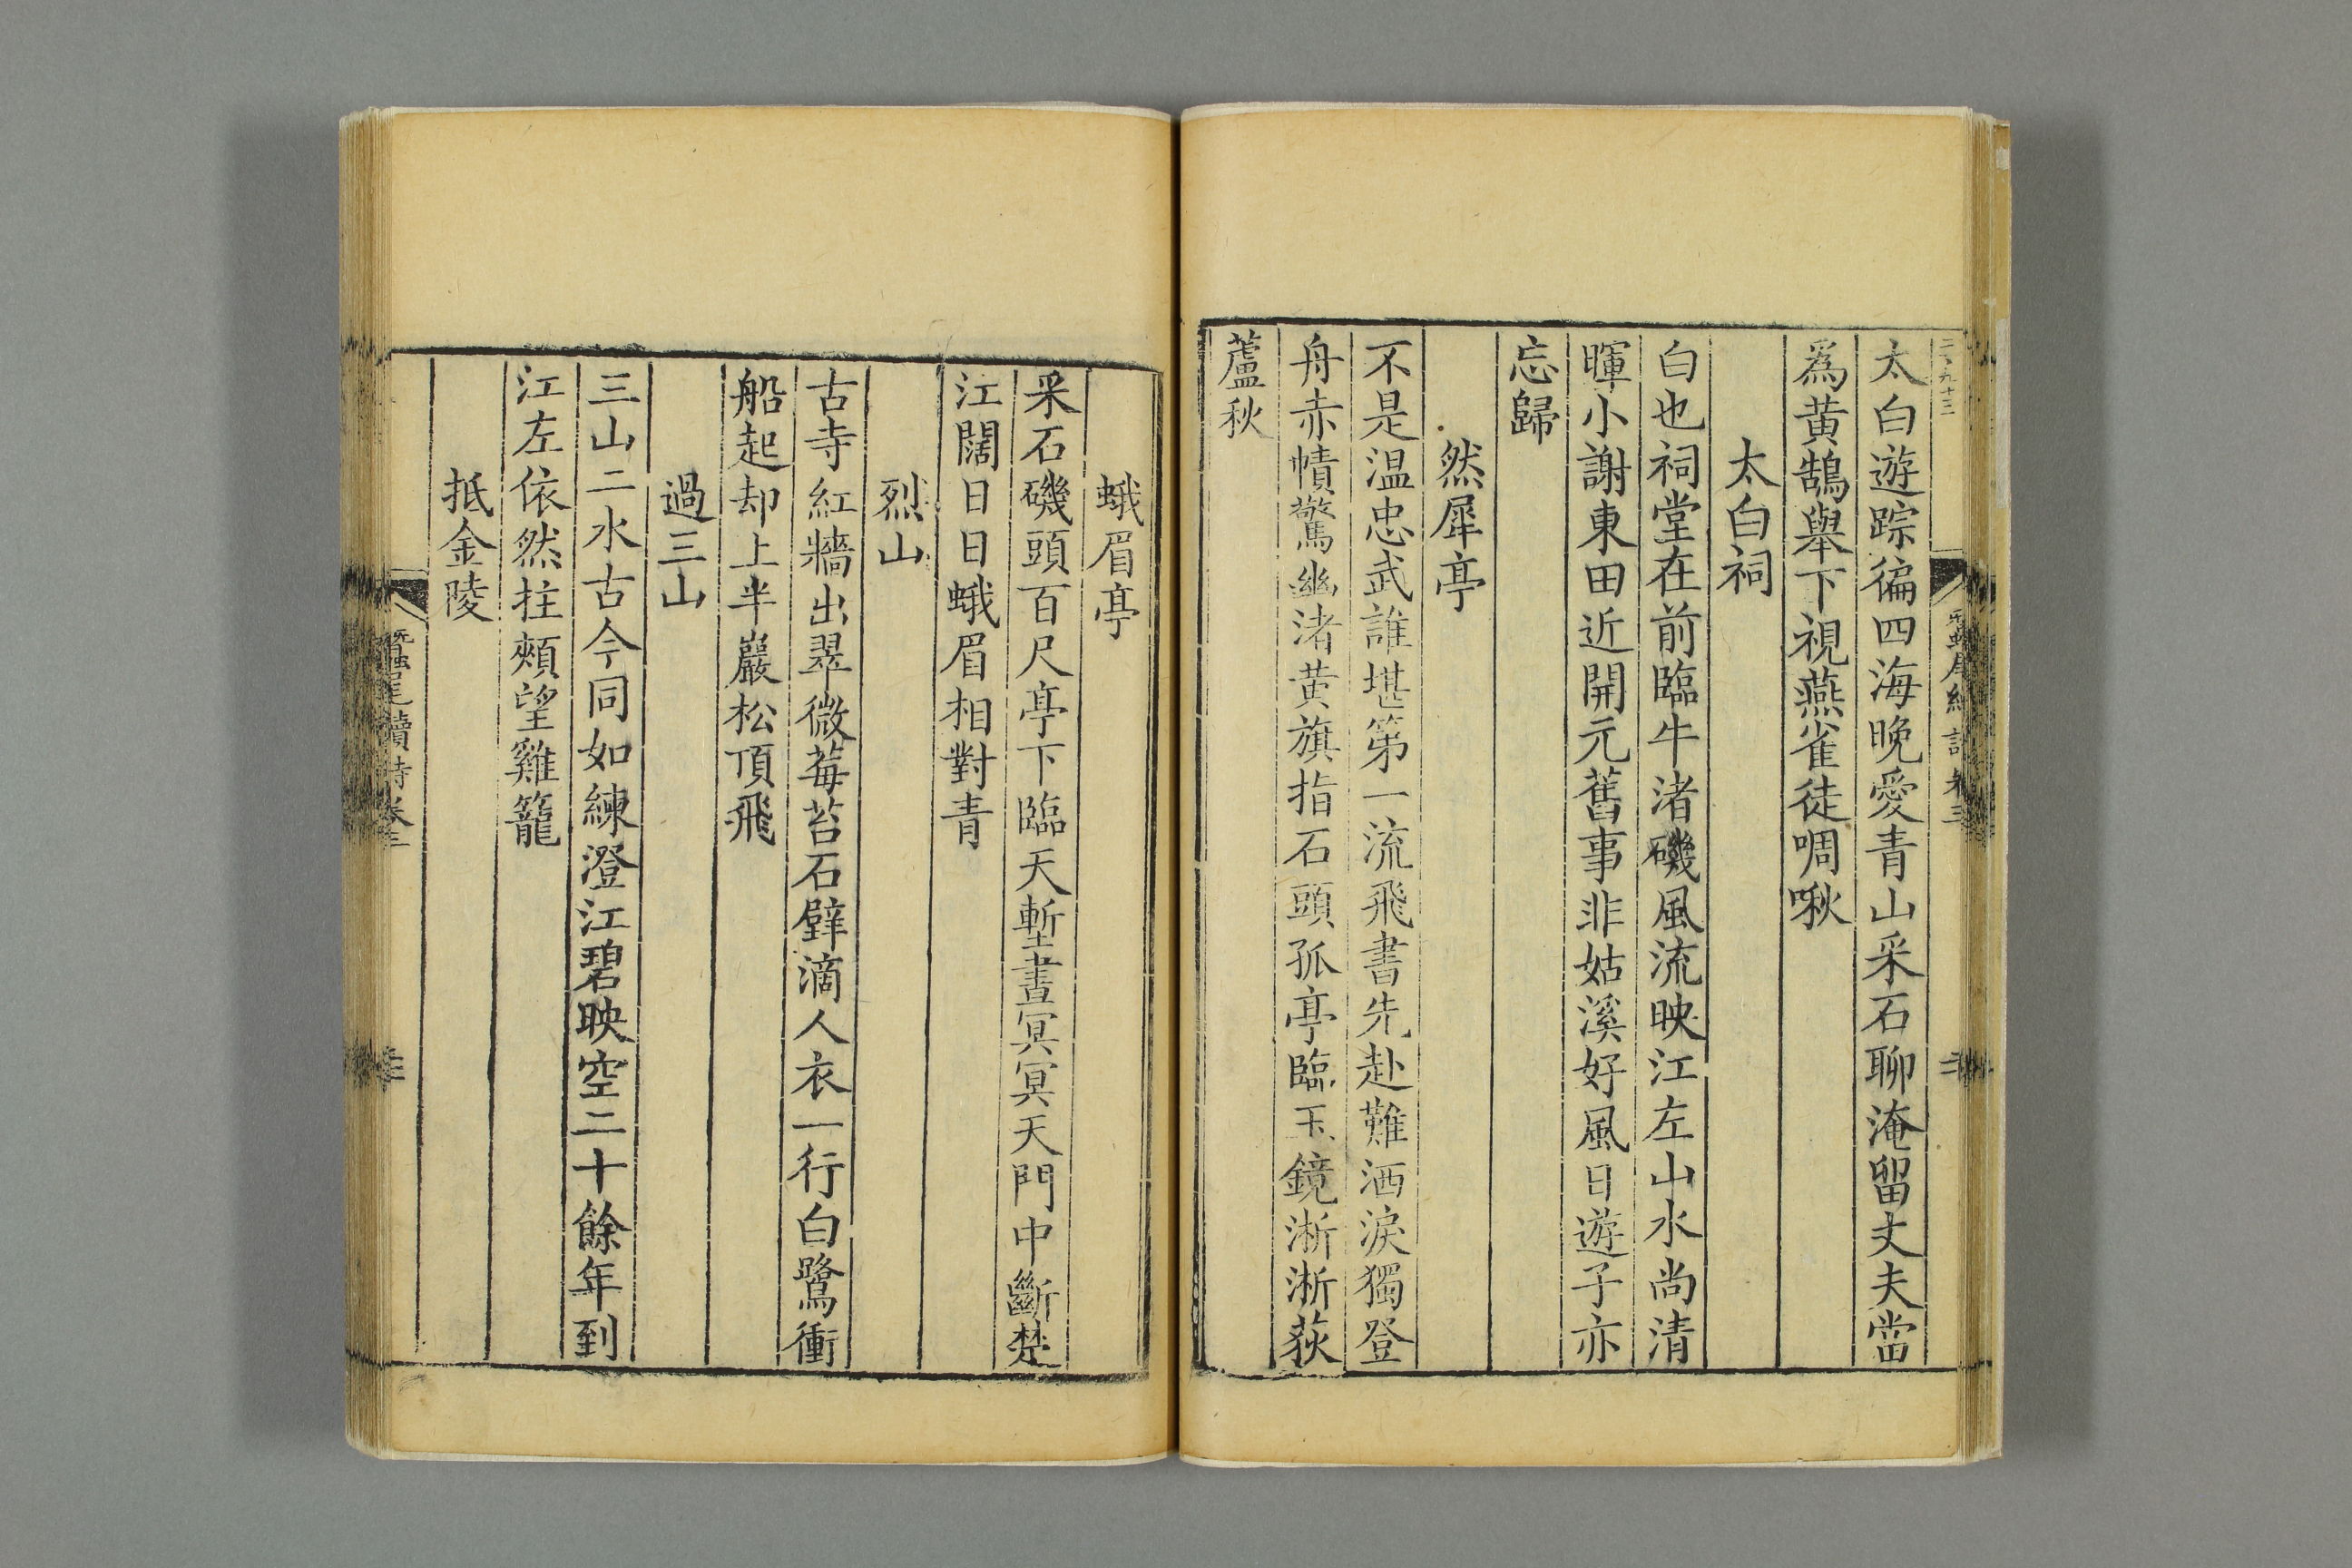 太白遊踪徧四海晚愛青山采石聊淹留丈夫當
爲黄鵠舉下視燕雀徒啁啾
太白祠
白也祠堂在前臨牛渚磯風流映江左山水尚清
暉小謝東田近開元舊事非姑溪好風日遊子亦
忘歸
然犀亭
不是温忠武誰堪第一流飛書先赴難洒淚獨登
舟赤幘驚幽渚黄旗指石頭孤亭臨玉鏡淅淅荻
蘆秋
蛾眉亭
采石磯頭百尺亭下臨天塹晝冥冥天門中斷楚
江闊日日蛾眉相對青
烈山
古寺紅牆出翠微莓苔石壁滴人衣一行白鷺衝
船起却上半巖松頂飛
過三山
三山二水古今同如練澄江碧映空二十餘年到
江左依然拄頰望雞籠
抵金陵
蠶尾續詩卷三